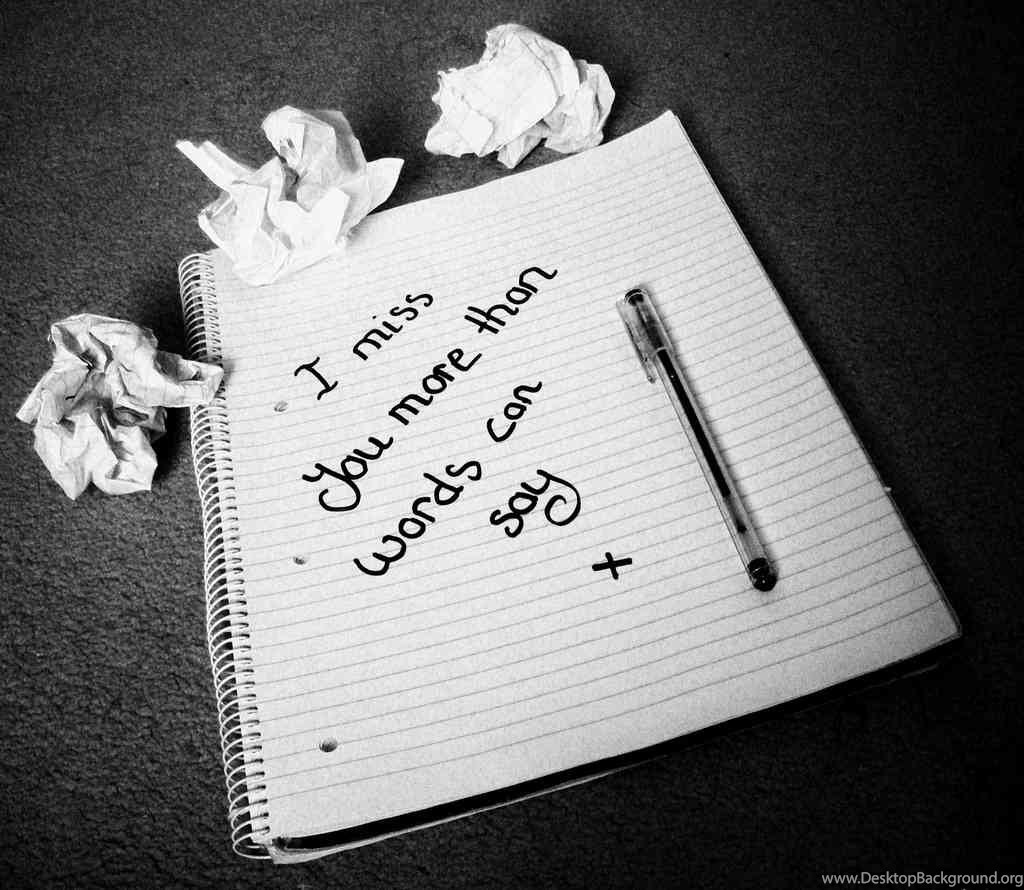 I miss
you more than
words can
say
+
www.DesktopBackground.org